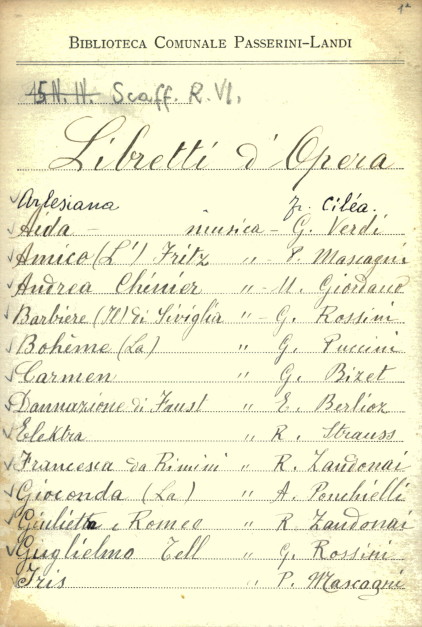 1ª
BIBLIOTECA COMUNALE PASSERINI-LANDI
45 N. H. Scaff. R. VI.
Libretti d'Opera
Arlesiana fr. Ciléa.
Aida - musica - G. Verdi
Amico (L') Fritz " - P. Mascagni
Andrea Chénier " - U. Giordano
Barbiere (Il) di Siviglia " - G. Rossini
Bohème (La) " G. Puccini
Carmen " G. Bizet
Dannazione di Faust " E. Berlioz
Elektra " R. Strauss
Francesca da Rimini " R. Zandonai
Gioconda (La) " A. Ponchielli
Giulietta e Romeo " R. Zandonai
Guglielmo Tell " G. Rossini
Iris " P. Mascagni